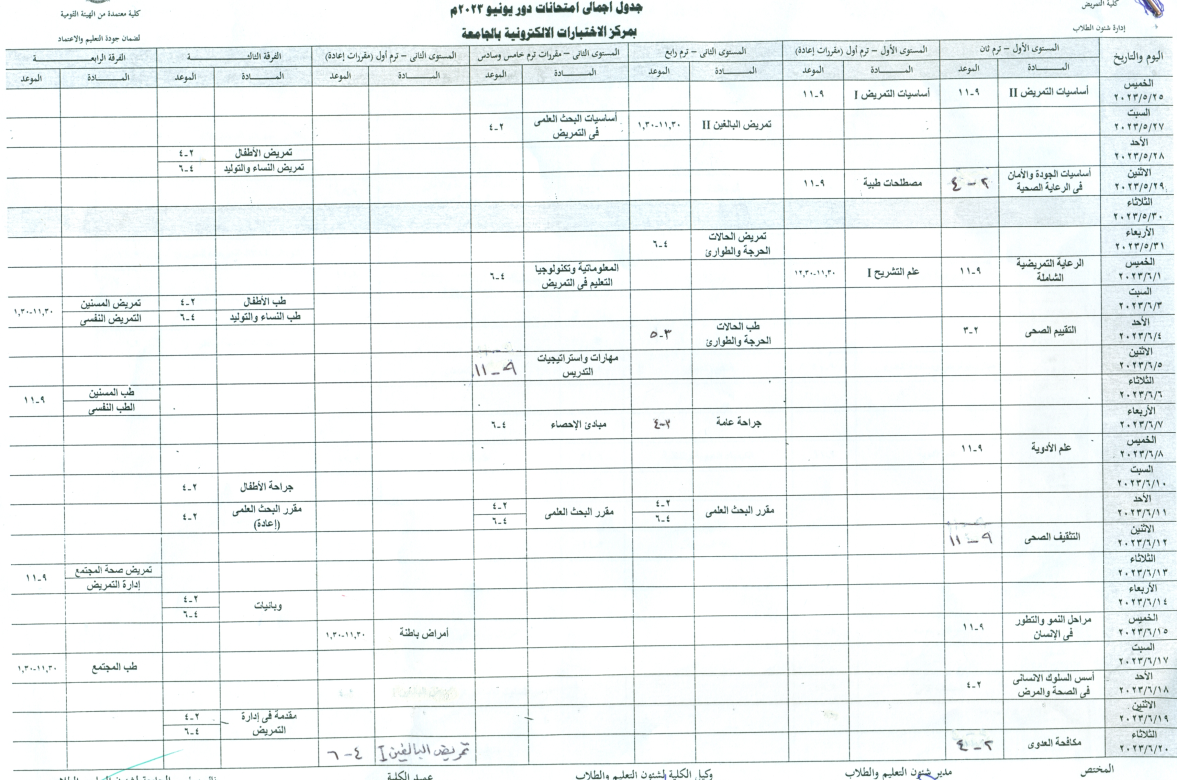 كلية التمريض
إدارة شئون الطلاب
جدول اجمالى امتحانات دور يونيو ٢٠٢٣م
بمركز الاختبارات الالكترونية بالجامعة
كلية معتمدة من الهيئة القومية
لضمان جودة التعليم والاعتماد
اليوم والتاريخ المستوى الأول – ترم ثان المستوى الأول – ترم أول (مقررات إعادة) المستوى الثانى – ترم رابع المستوى الثانى – مقررات ترم خامس وسادس المستوى الثانى – ترم أول (مقررات إعادة) الفرقة الثالثة الفرقة الرابعة
المادة الموعد المادة الموعد المادة الموعد المادة الموعد المادة الموعد المادة الموعد المادة الموعد
الخميس ٢٠٢٣/٥/٢٥ أساسيات التمريض II ٩-١١ أساسيات التمريض I ٩-١١
السبت ٢٠٢٣/٥/٢٧ تمريض البالغين II ١١,٣٠-١,٣٠ أساسيات البحث العلمى فى التمريض ٢-٤
الأحد ٢٠٢٣/٥/٢٨ تمريض الأطفال ٢-٤
تمريض النساء والتوليد ٤-٦
الاثنين ٢٠٢٣/٥/٢٩ أساسيات الجودة والأمان فى الرعاية الصحية ٢-٤ مصطلحات طبية ٩-١١
الثلاثاء ٢٠٢٣/٥/٣٠
الأربعاء ٢٠٢٣/٥/٣١ تمريض الحالات الحرجة والطوارئ ٤-٦
الخميس ٢٠٢٣/٦/١ الرعاية التمريضية الشاملة ٩-١١ علم التشريح I ١١,٣٠-١٢,٣٠ المعلوماتية وتكنولوجيا التعليم فى التمريض ٤-٦
السبت ٢٠٢٣/٦/٣ طب الأطفال ٢-٤ تمريض المسنين ١١,٣٠-١,٣٠
طب النساء والتوليد ٤-٦ التمريض النفسى
الأحد ٢٠٢٣/٦/٤ التقييم الصحى ٢-٣ طب الحالات الحرجة والطوارئ ٣-٥
الاثنين ٢٠٢٣/٦/٥ مهارات واستراتيجيات التدريس ٩-١١
الثلاثاء ٢٠٢٣/٦/٦ طب المسنين ٩-١١
الطب النفسى
الأربعاء ٢٠٢٣/٦/٧ جراحة عامة ٢-٤ مبادئ الإحصاء ٤-٦
الخميس ٢٠٢٣/٦/٨ علم الأدوية ٩-١١
السبت ٢٠٢٣/٦/١٠ جراحة الأطفال ٢-٤
الأحد ٢٠٢٣/٦/١١ مقرر البحث العلمى ٢-٤ ٤-٦ مقرر البحث العلمى ٢-٤ ٤-٦ مقرر البحث العلمى (إعادة) ٢-٤
الاثنين ٢٠٢٣/٦/١٢ التثقيف الصحى ٩-١١
الثلاثاء ٢٠٢٣/٦/١٣ تمريض صحة المجتمع ٩-١١
إدارة التمريض
الأربعاء ٢٠٢٣/٦/١٤ وبائيات ٢-٤ ٤-٦
الخميس ٢٠٢٣/٦/١٥ مراحل النمو والتطور فى الإنسان ٩-١١ أمراض باطنة ١١,٣٠-١,٣٠
السبت ٢٠٢٣/٦/١٧ طب المجتمع ١١,٣٠-١,٣٠
الأحد ٢٠٢٣/٦/١٨ أسس السلوك الانسانى فى الصحة والمرض ٢-٤
الاثنين ٢٠٢٣/٦/١٩ مقدمة فى إدارة التمريض ٢-٤ ٤-٦
الثلاثاء ٢٠٢٣/٦/٢٠ مكافحة العدوى ٢-٤ تمريض البالغين I ٤-٦
المختص مدير شئون التعليم والطلاب وكيل الكلية لشئون التعليم والطلاب عميد الكلية